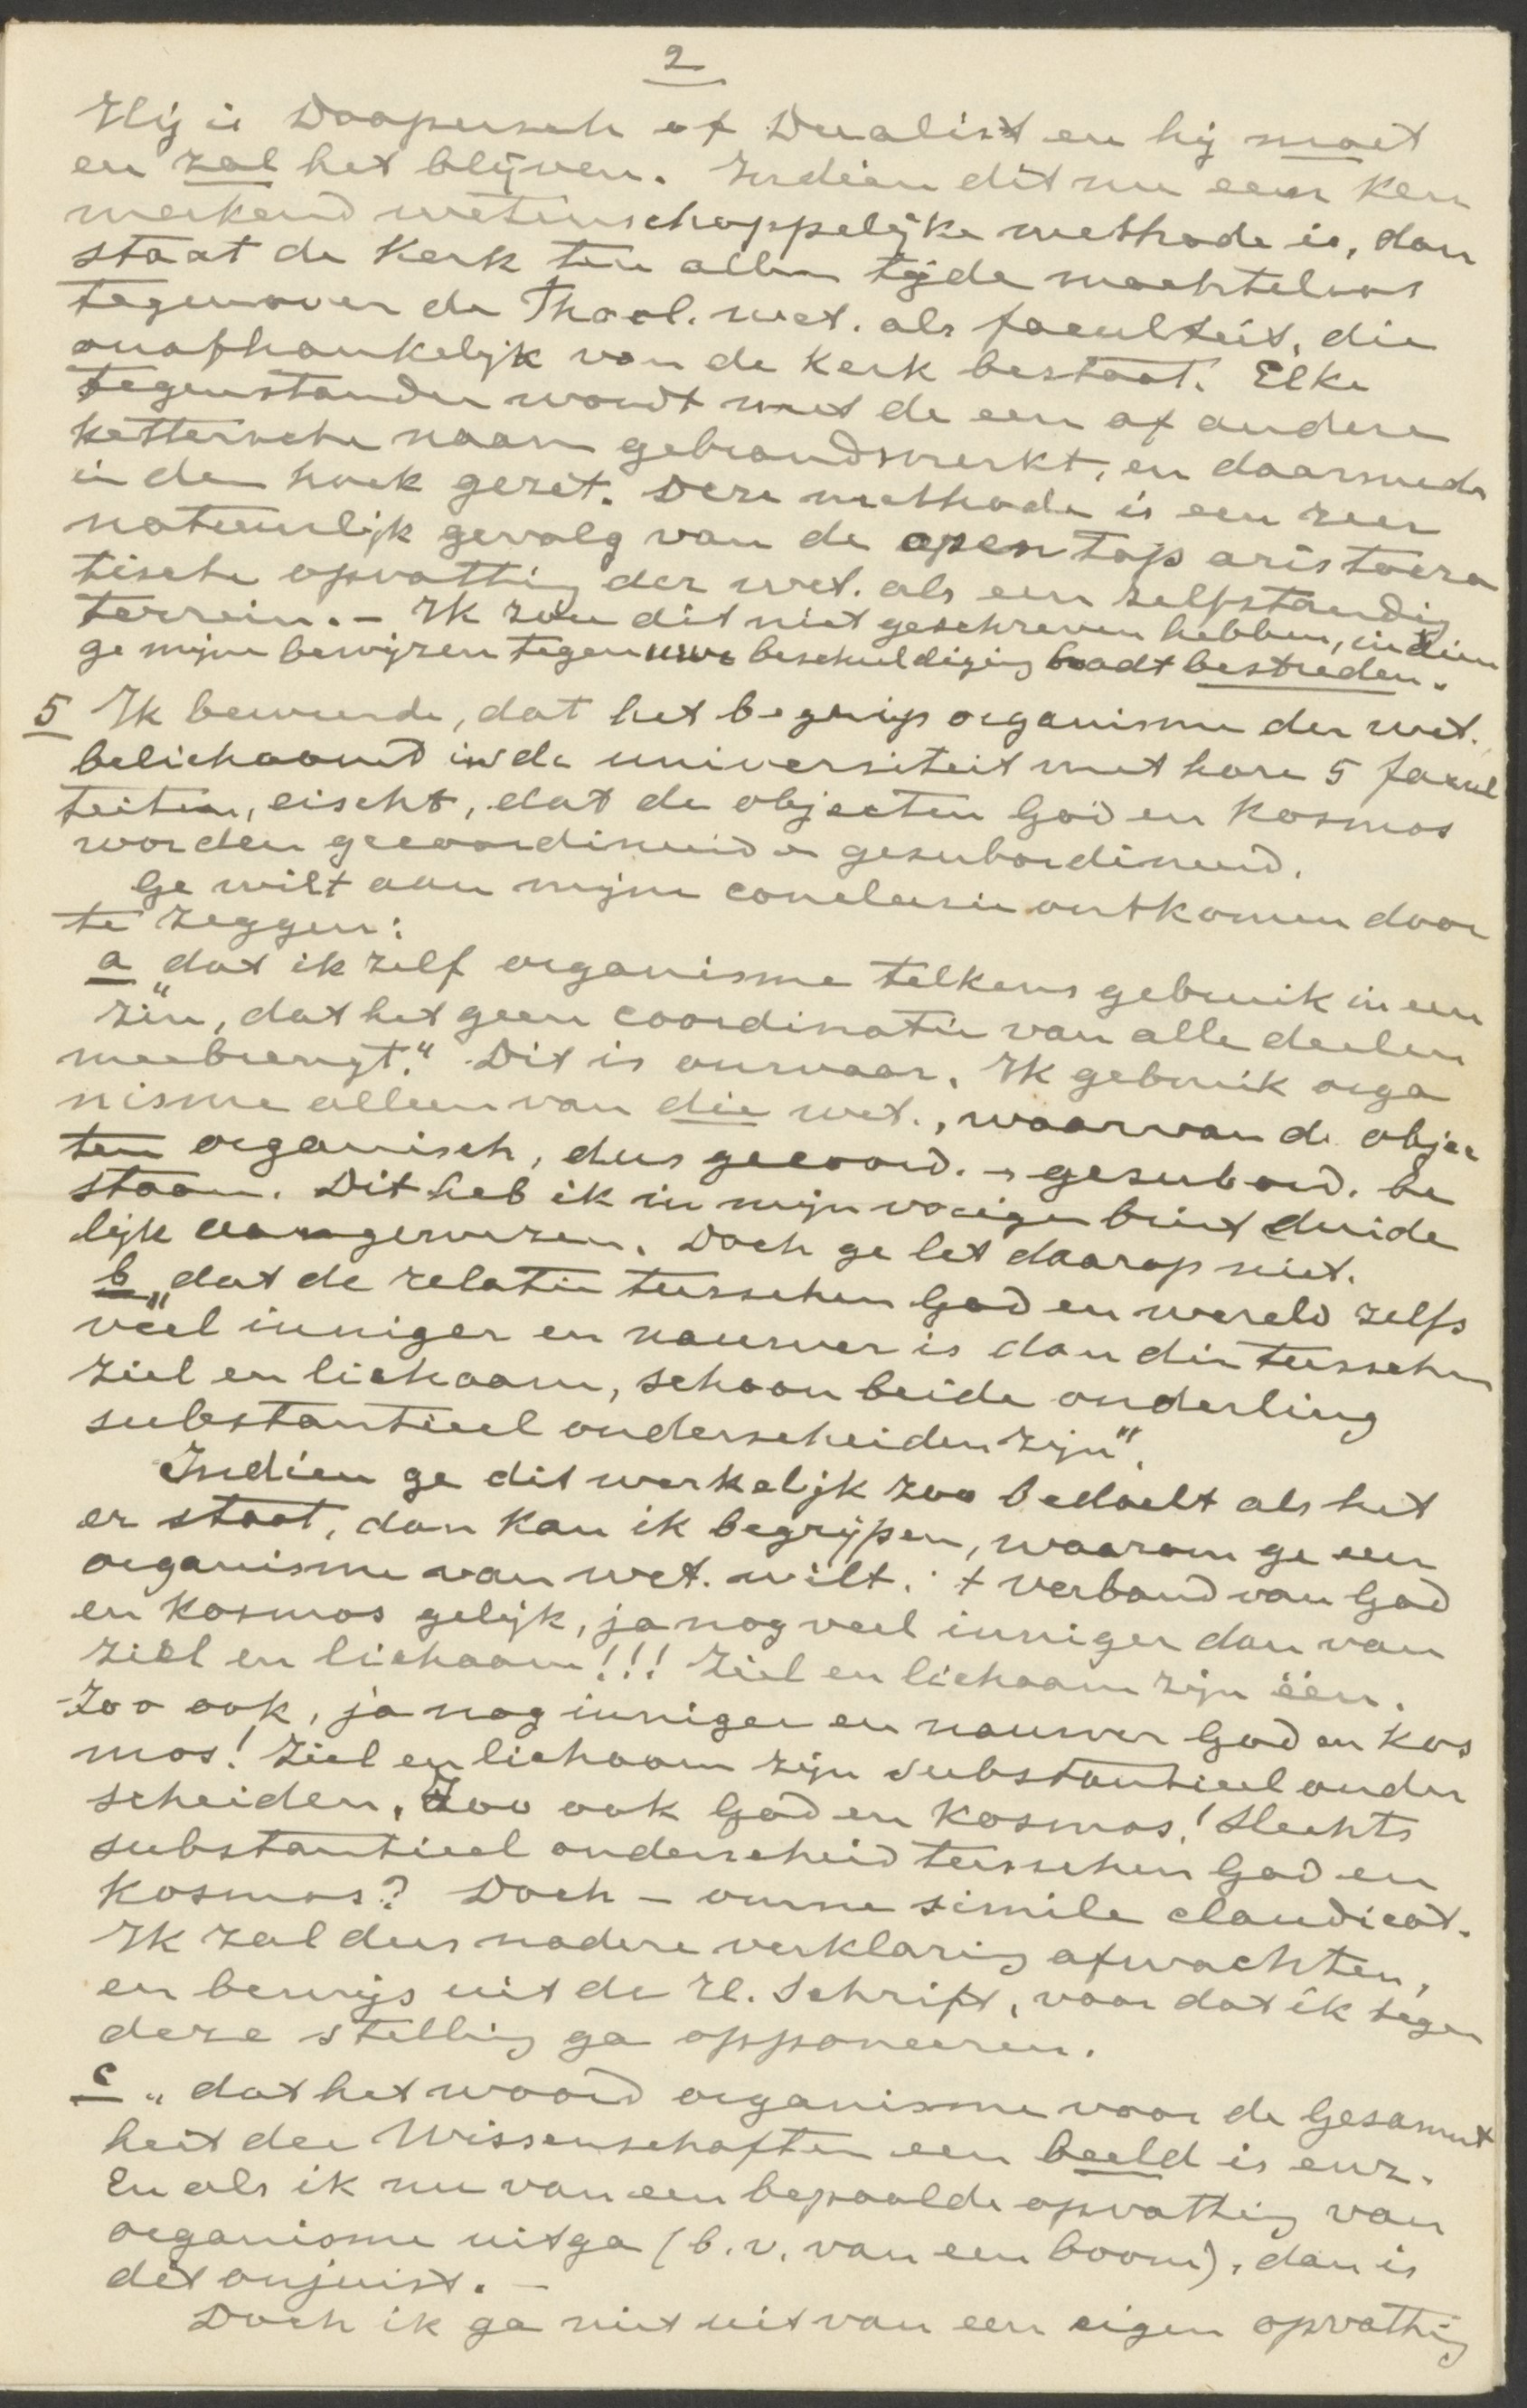 2
Hij is Doopersch of Dualist en hij moet
en zal het blijven. Indien dit nu een ken
merkend wetenschappelijke methode is, dan
staat de Kerk ten allen tijde machteloos
tegenover de Theol. wet. als faculteit, die
onafhankelijk van de Kerk bestaat. Elke
tegenstander wordt met de een of andere
kettersche naam gebrandmerkt, en daarmede
in den hoek gezet. Deze methode is een zeer
natuurlijk gevolg van de op en top aristocra
tische opvatting der wet. als een zelfstandig
terrein. – Ik zou dit niet geschreven hebben, indien
ge mijne bewijzen tegen uwe beschuldiging hadt bestreden.
5 Ik beweerde, dat het begrip organisme der wet.
belichaamd in de universiteit met hare 5 facul
teiten, eischt, dat de objecten God en Kosmos
worden gecoordineerd en gesubordineerd.
Ge wilt aan mijne conclusie ontkomen door
te zeggen:
a „dat ik zelf organisme telkens gebruik in een
zin, dat het geen coordinatie van alle deelen
meebrengt." Dit is onwaar. Ik gebruik orga
nisme alleen van die wet., waarvan de objec
ten organisch, dus gecoord. en gesubord. be
staan. Dit heb ik in mijn vorigen brief duide
lijk aangewezen. Doch ge let daarop niet.
b „dat de relatie tusschen God en wereld zelfs
veel inniger en nauwer is dan die tusschen
ziel en lichaam, schoon beide onderling
substantieel onderscheiden zijn".
Indien ge dit werkelijk zoo bedoelt als het
er staat, dan kan ik begrijpen, waarom ge een
organisme van wet. wilt. 't verband van God
en Kosmos gelijk, ja nog veel inniger dan van
ziel en lichaam!!! Ziel en lichaam zijn één.
Zoo ook, ja nog inniger en nauwer God en Kos
mos! Ziel en lichaam zijn substantieel onder
scheiden. Zoo ook God en Kosmos! Slechts
substantieel onderscheid tusschen God en
Kosmos? Doch – omne simile claudicat.
Ik zal dus nadere verklaring afwachten,
en bewijs uit de H. Schrift, voor dat ik tegen
deze stelling ga opponeeren.
c „dat het woord organisme voor de Gesammt
heit der Wissenschaften een beeld is enz.
En als ik nu van een bepaalde opvatting van
organisme uitga (b.v. van een boom), dan is
dit onjuist. –
Doch ik ga niet uit van een eigen opvatting